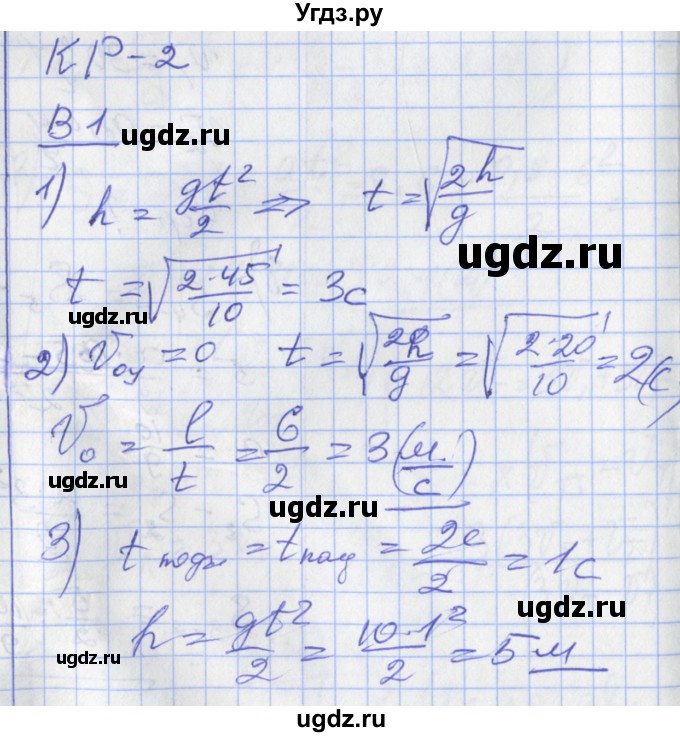 Угдз.ру
КР-2
В1
ugdz.ru
1) h = gt²/2 ⇒ t = √(2h/g)
ugdz.ru
t = √(2·45/10) = 3с
ugdz.ru
2) V₀y = 0 t = √(2h/g) = √(2·20/10) = 2(с)
V₀ = l/t = 6/2 = 3(м/с)
ugdz.ru ugdz.ru
3) t подъ = t пад = 2с/2 = 1с
ugdz.ru
h = gt²/2 = 10·1²/2 = 5 м
ugdz.ru ugdz.ru
ugdz.ru